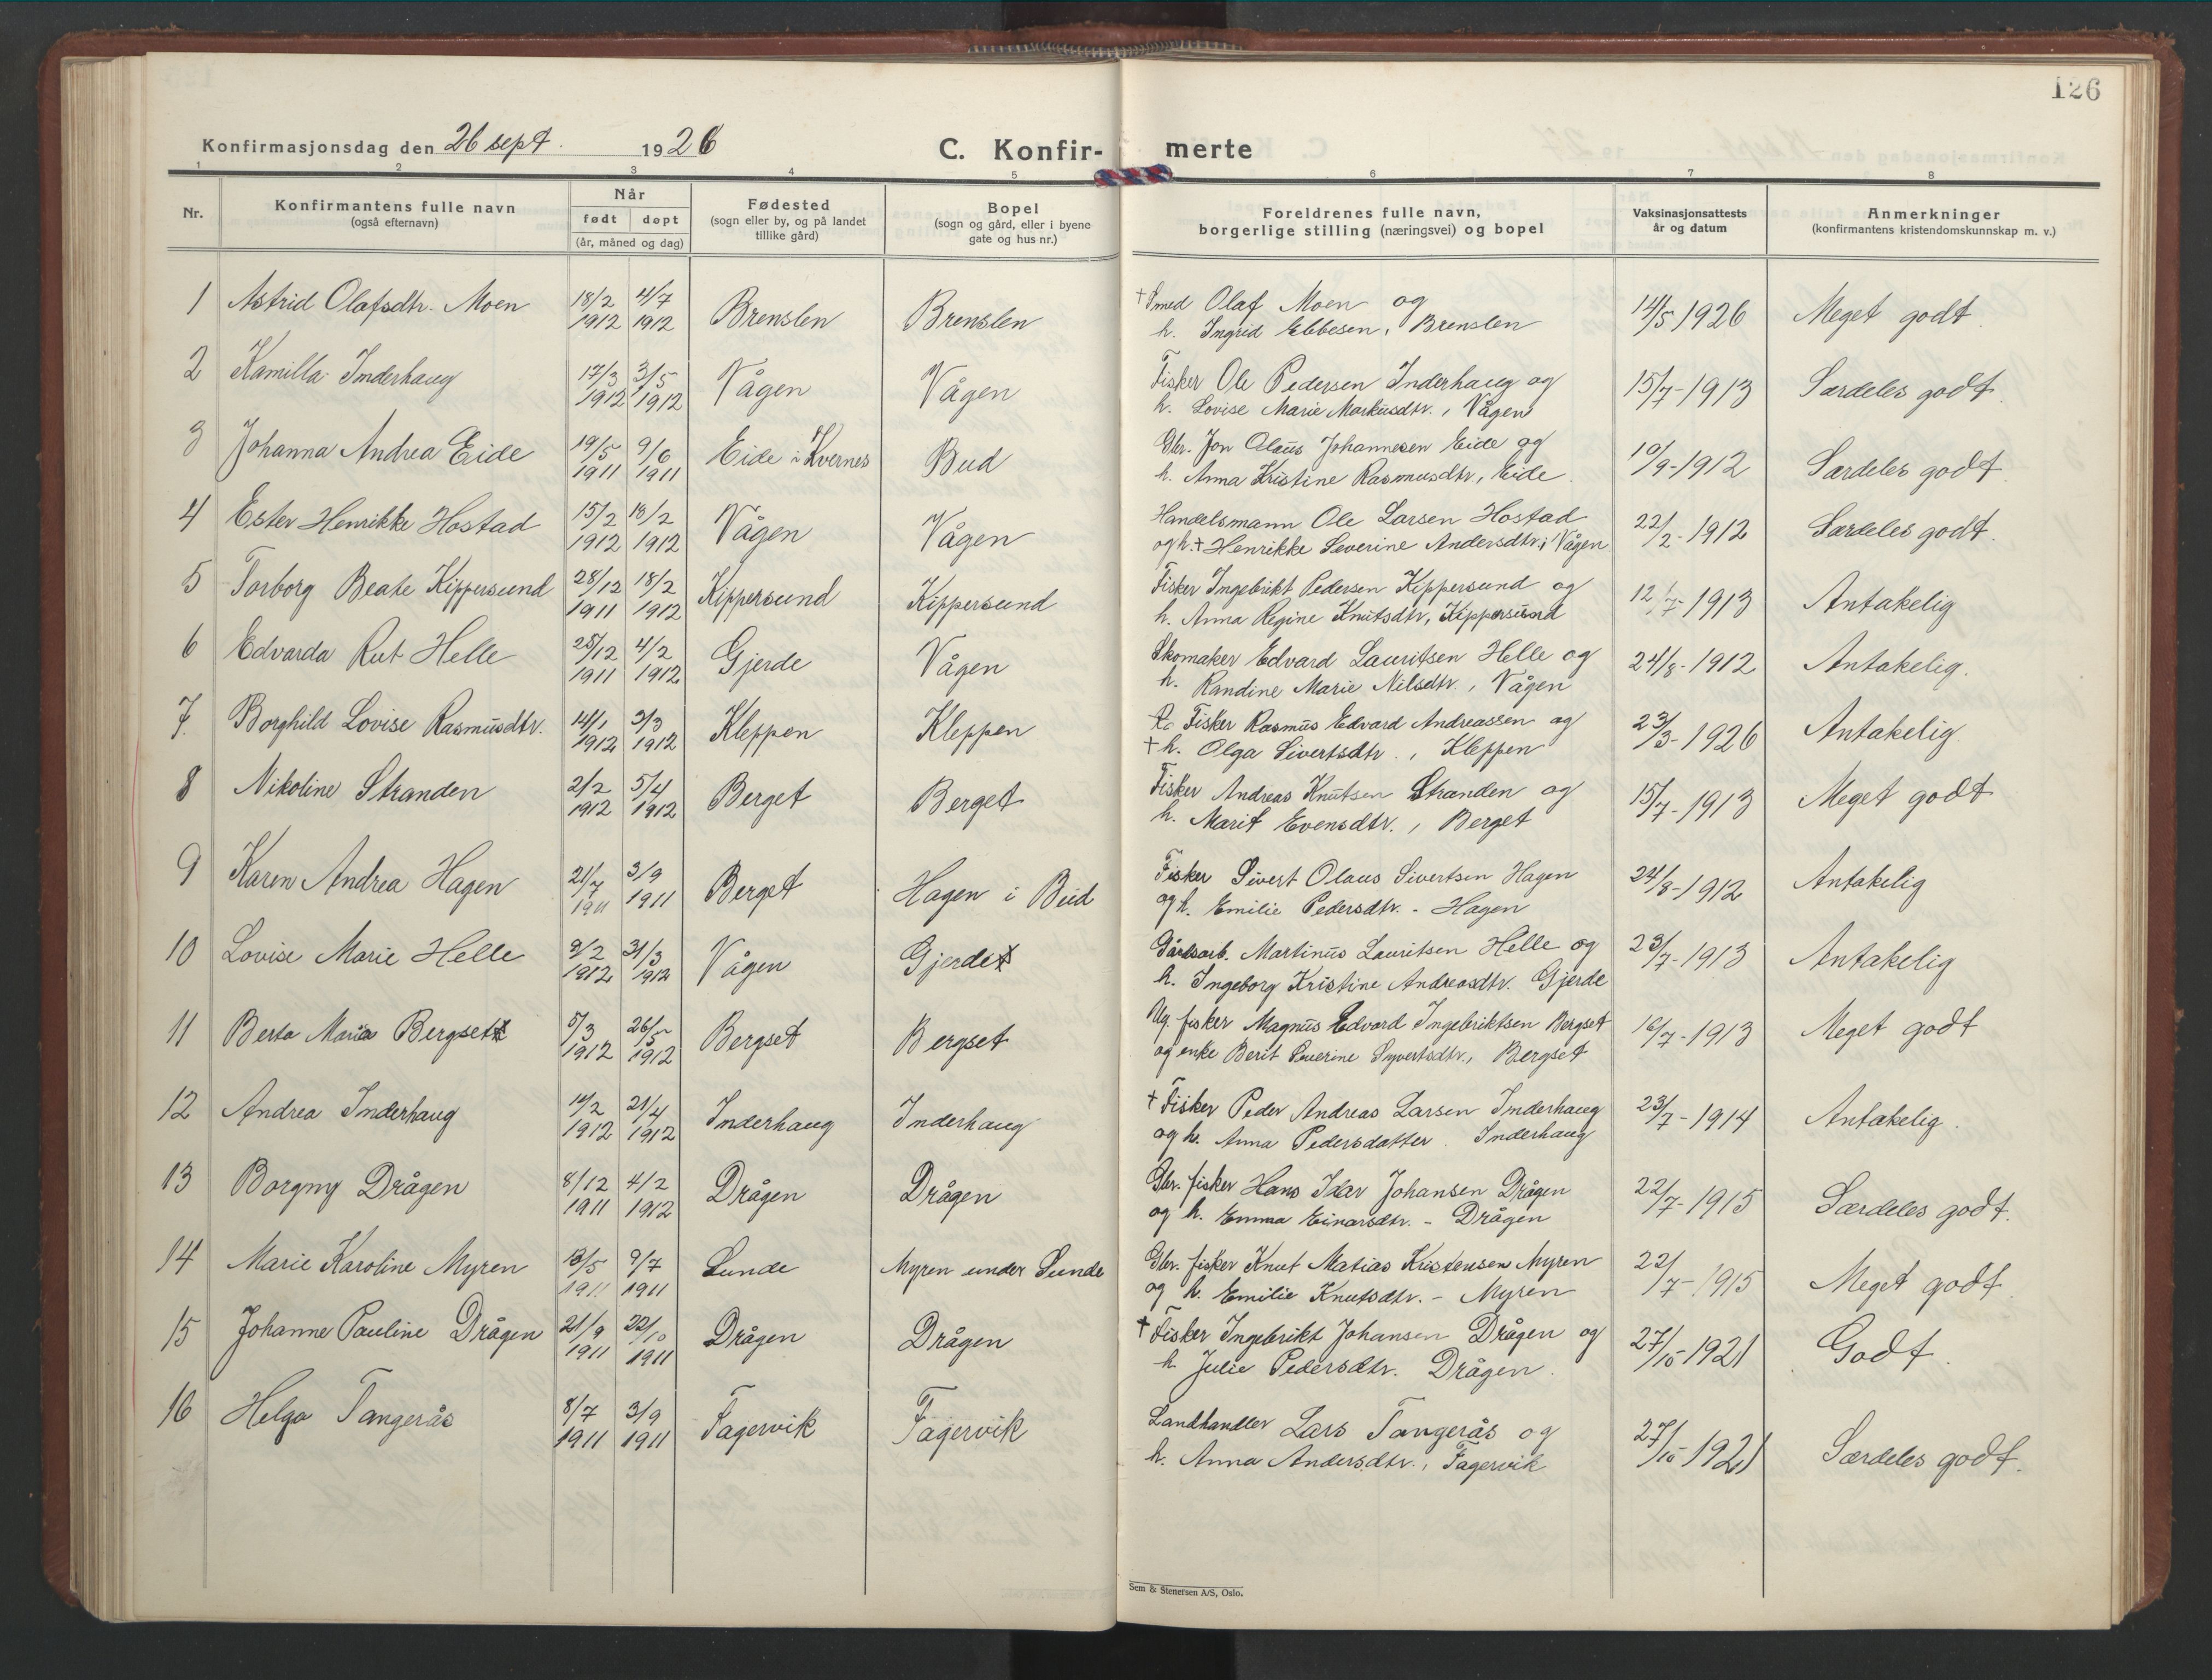 126
Konfirmasjonsdag den 26 sept. 1926
C. Konfir- merte
1 2 3 4 5 6 7 8
Nr. Konfirmantens fulle navn (også efternavn) Når født døpt (år, måned og dag) Fødested (sogn eller by, og på landet tillike gård) Bopel (sogn og gård, eller i byene gate og hus nr.) Foreldrenes fulle navn, borgerlige stilling (næringsvei) og bopel Vaksinasjonsattests år og datum Anmerkninger (konfirmantens kristendomskunnskap m. v.)
1 Astrid Olafsdtr. Moen 18/2 1912 4/7 1912 Brenslen Brenslen † Smed Olaf Moen og 14/5 1926 Meget godt.
h. Ingrid Ebbesen, Brenslen
2 Kamilla Inderhaug 17/3 1912 3/5 1912 Vågen Vågen Fisker Ole Pedersen Inderhaug og 15/7-1913 Særdeles godt
h. Lovise Marie Markusdtr., Vågen
3 Johanna Andrea Eide 19/5 1911 9/6 1911 Eide i Kvernes Bud Gbr. Jon Olaus Johannesen Eide og 10/9-1912 Særdeles godt.
h. Anna Kristine Rasmusdtr., Eide.
4 Ester Henrikke Hostad 15/2 1912 18/2 1912 Vågen Vågen Handelsmann Ole Larsen Hostad 22/2-1912 Særdeles godt.
og h. † Henrikke Severine Andersdtr. i Vågen
5 Torborg Beate Kippersund 28/12 1911 18/2 1912 Kippersund Kippersund Fisker Ingebrikt Pedersen Kippersund og 12/7-1913 Antakelig
h. Anna Regine Knutsdtr, Kippersund
6 Edvarda Rut Helle 25/12 1911 4/2 1912 Gjerde Vågen Skomaker Edvard Lauritsen Helle og 24/8-1912 Antakelig.
h. Randine Marie Nilsdtr., Vågen
7. Borghild Lovise Rasmusdtr. 14/1 1912 3/3 1912 Kleppen Kleppen Fisker Rasmus Edvard Andreassen og 23/3-1926 Antakelig.
† h. Olga Sivertsdtr., Kleppen
8 Nikoline Stranden 2/2 1912 5/4 1912 Berget Berget Fisker Andreas Knutsen Stranden og 15/7-1913 Meget godt
h. Marit Evensdtr., Berget
9 Karen Andrea Hagen 21/7 1911 3/9 1911 Berget Hagen i Bud Fisker Sivert Olaus Sivertsen Hagen 24/8-1912 Antakelig
og h. Emilie Pedersdtr. - Hagen
10 Lovise Marie Helle 9/2 1912 31/3 1912 Vågen Gjerde Gårdsarb. Martinus Lauritsen Helle og 23/7-1913 Antakelig
h. Ingeborg Kristine Andreasdtr. Gjerde
11 Berta Maria Bergset 5/3 1912 26/5 1912 Bergset Bergset Ug. fisker Magnus Edvard Ingebriktsen Bergset 16/7-1913 Meget godt
og enke Berit Severine Syvertsdtr., Bergset
12 Andrea Inderhaug 1912 21/4 1912 Inderhaug Inderhaug † Fisker Peder Andreas Larsen Inderhaug 23/7-1914 Antakelig.
og h. Anna Pedersdatter. Inderhaug
13 Borgny Drågen 8/12 1911 4/2 1912 Drågen Drågen Gbr. fisker Hans Johansen Drågen 22/7-1915 Særdeles godt.
og h. Emma Einarsdtr. - Drågen
14 Marie Karoline Myren 13/5 1911 9/7 1911 Sunde Myren under Sunde Gbr. fisker Knut Matias Kristensen Myren 22/7-1915 Meget godt.
og h. Emilie Knutsdtr. - Myren
15 Johanne Pauline Drågen 21/9 1911 22/10 1911 Drågen Drågen † Fisker Ingebrikt Johansen Drågen og 27/10-1921 Godt.
h. Julie Pedersdtr. Drågen.
16 Helga Tangerås 8/7 1911 3/9 1911 Fagervik Fagervik Landhandler Lars Tangerås og 27/10-1921 Særdeles godt.
h. Anna Andersdtr., Fagervik
Sem & Stenersen A/S, Oslo.